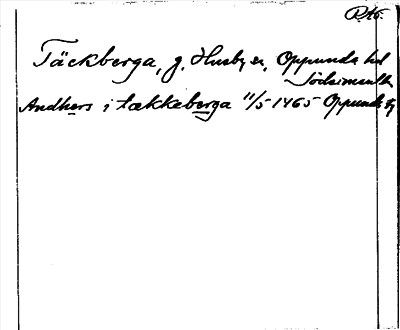 RA6.
Täckberga, g. Husby sn, Oppunda hd
Södermanl.
Andhers i tækkeberga 11/5 1465 Oppunda